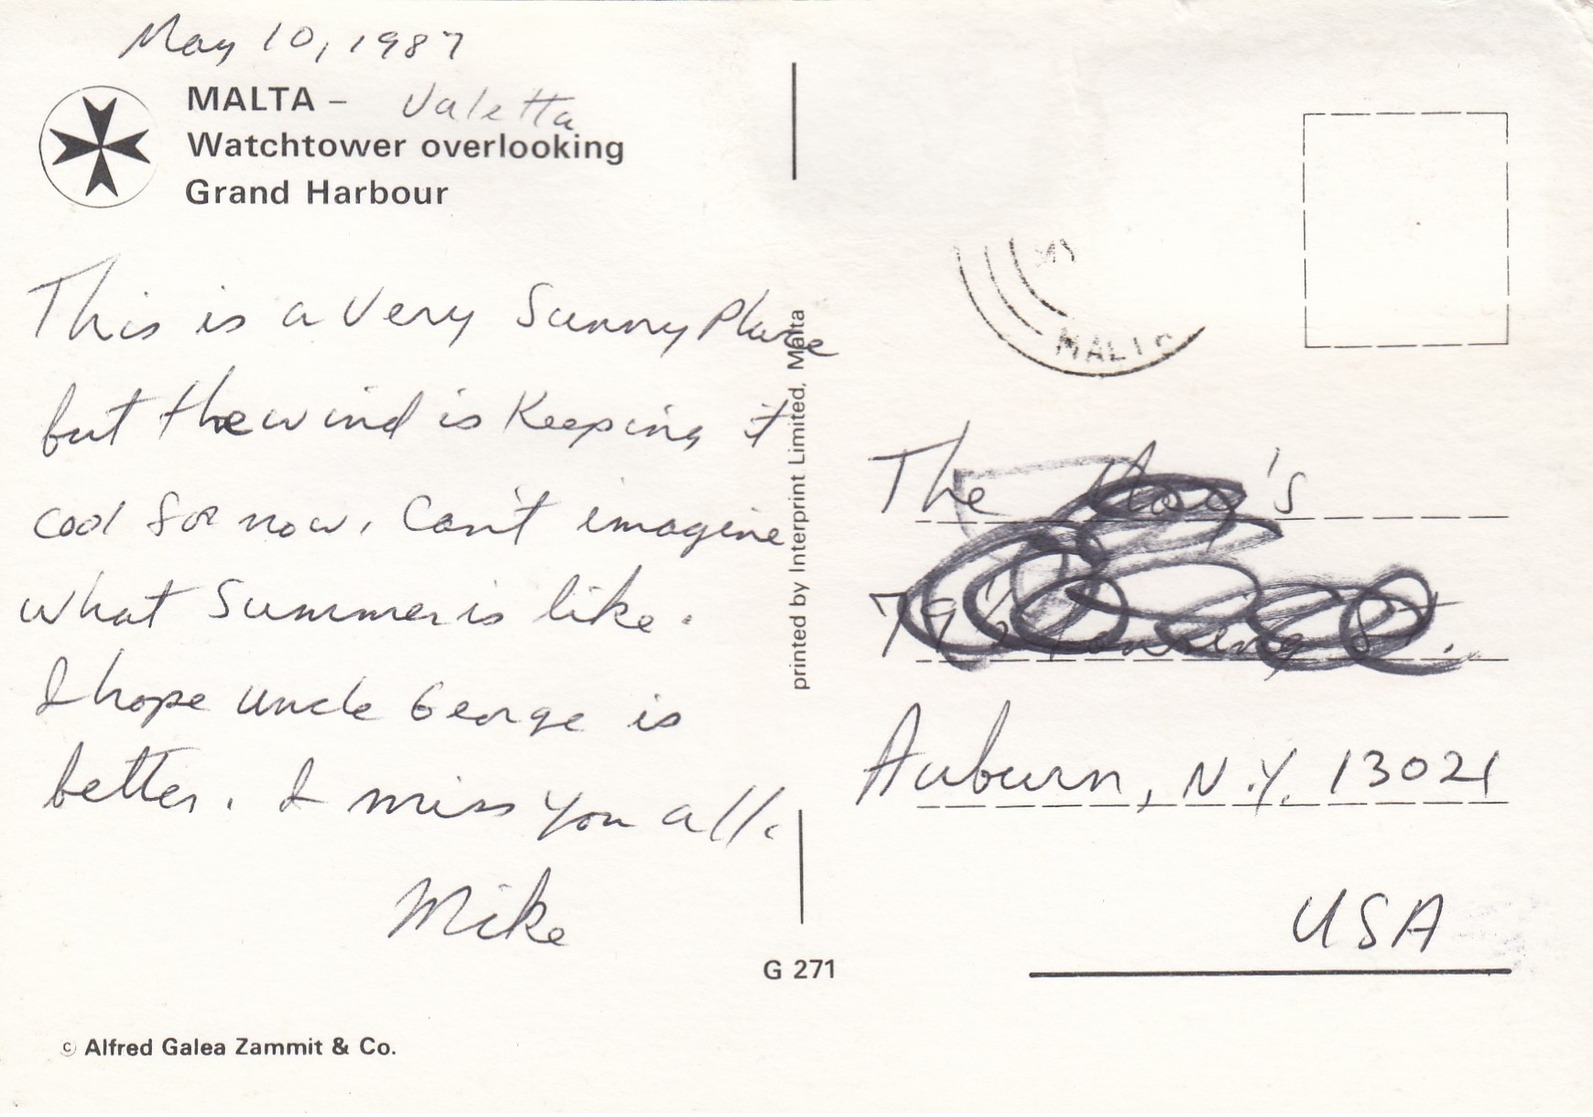 May 10, 1987
MALTA – Valetta
Watchtower overlooking
Grand Harbour
This is a Very Sunny Place
but the wind is Keeping it
cool for now. Can't imagine
what Summer is like.
I hope Uncle George is
better. I miss you all.
Mike
© Alfred Galea Zammit & Co.
printed by Interprint Limited, Malta
G 271
MALTA
The
St.
Auburn, N.Y. 13021
USA